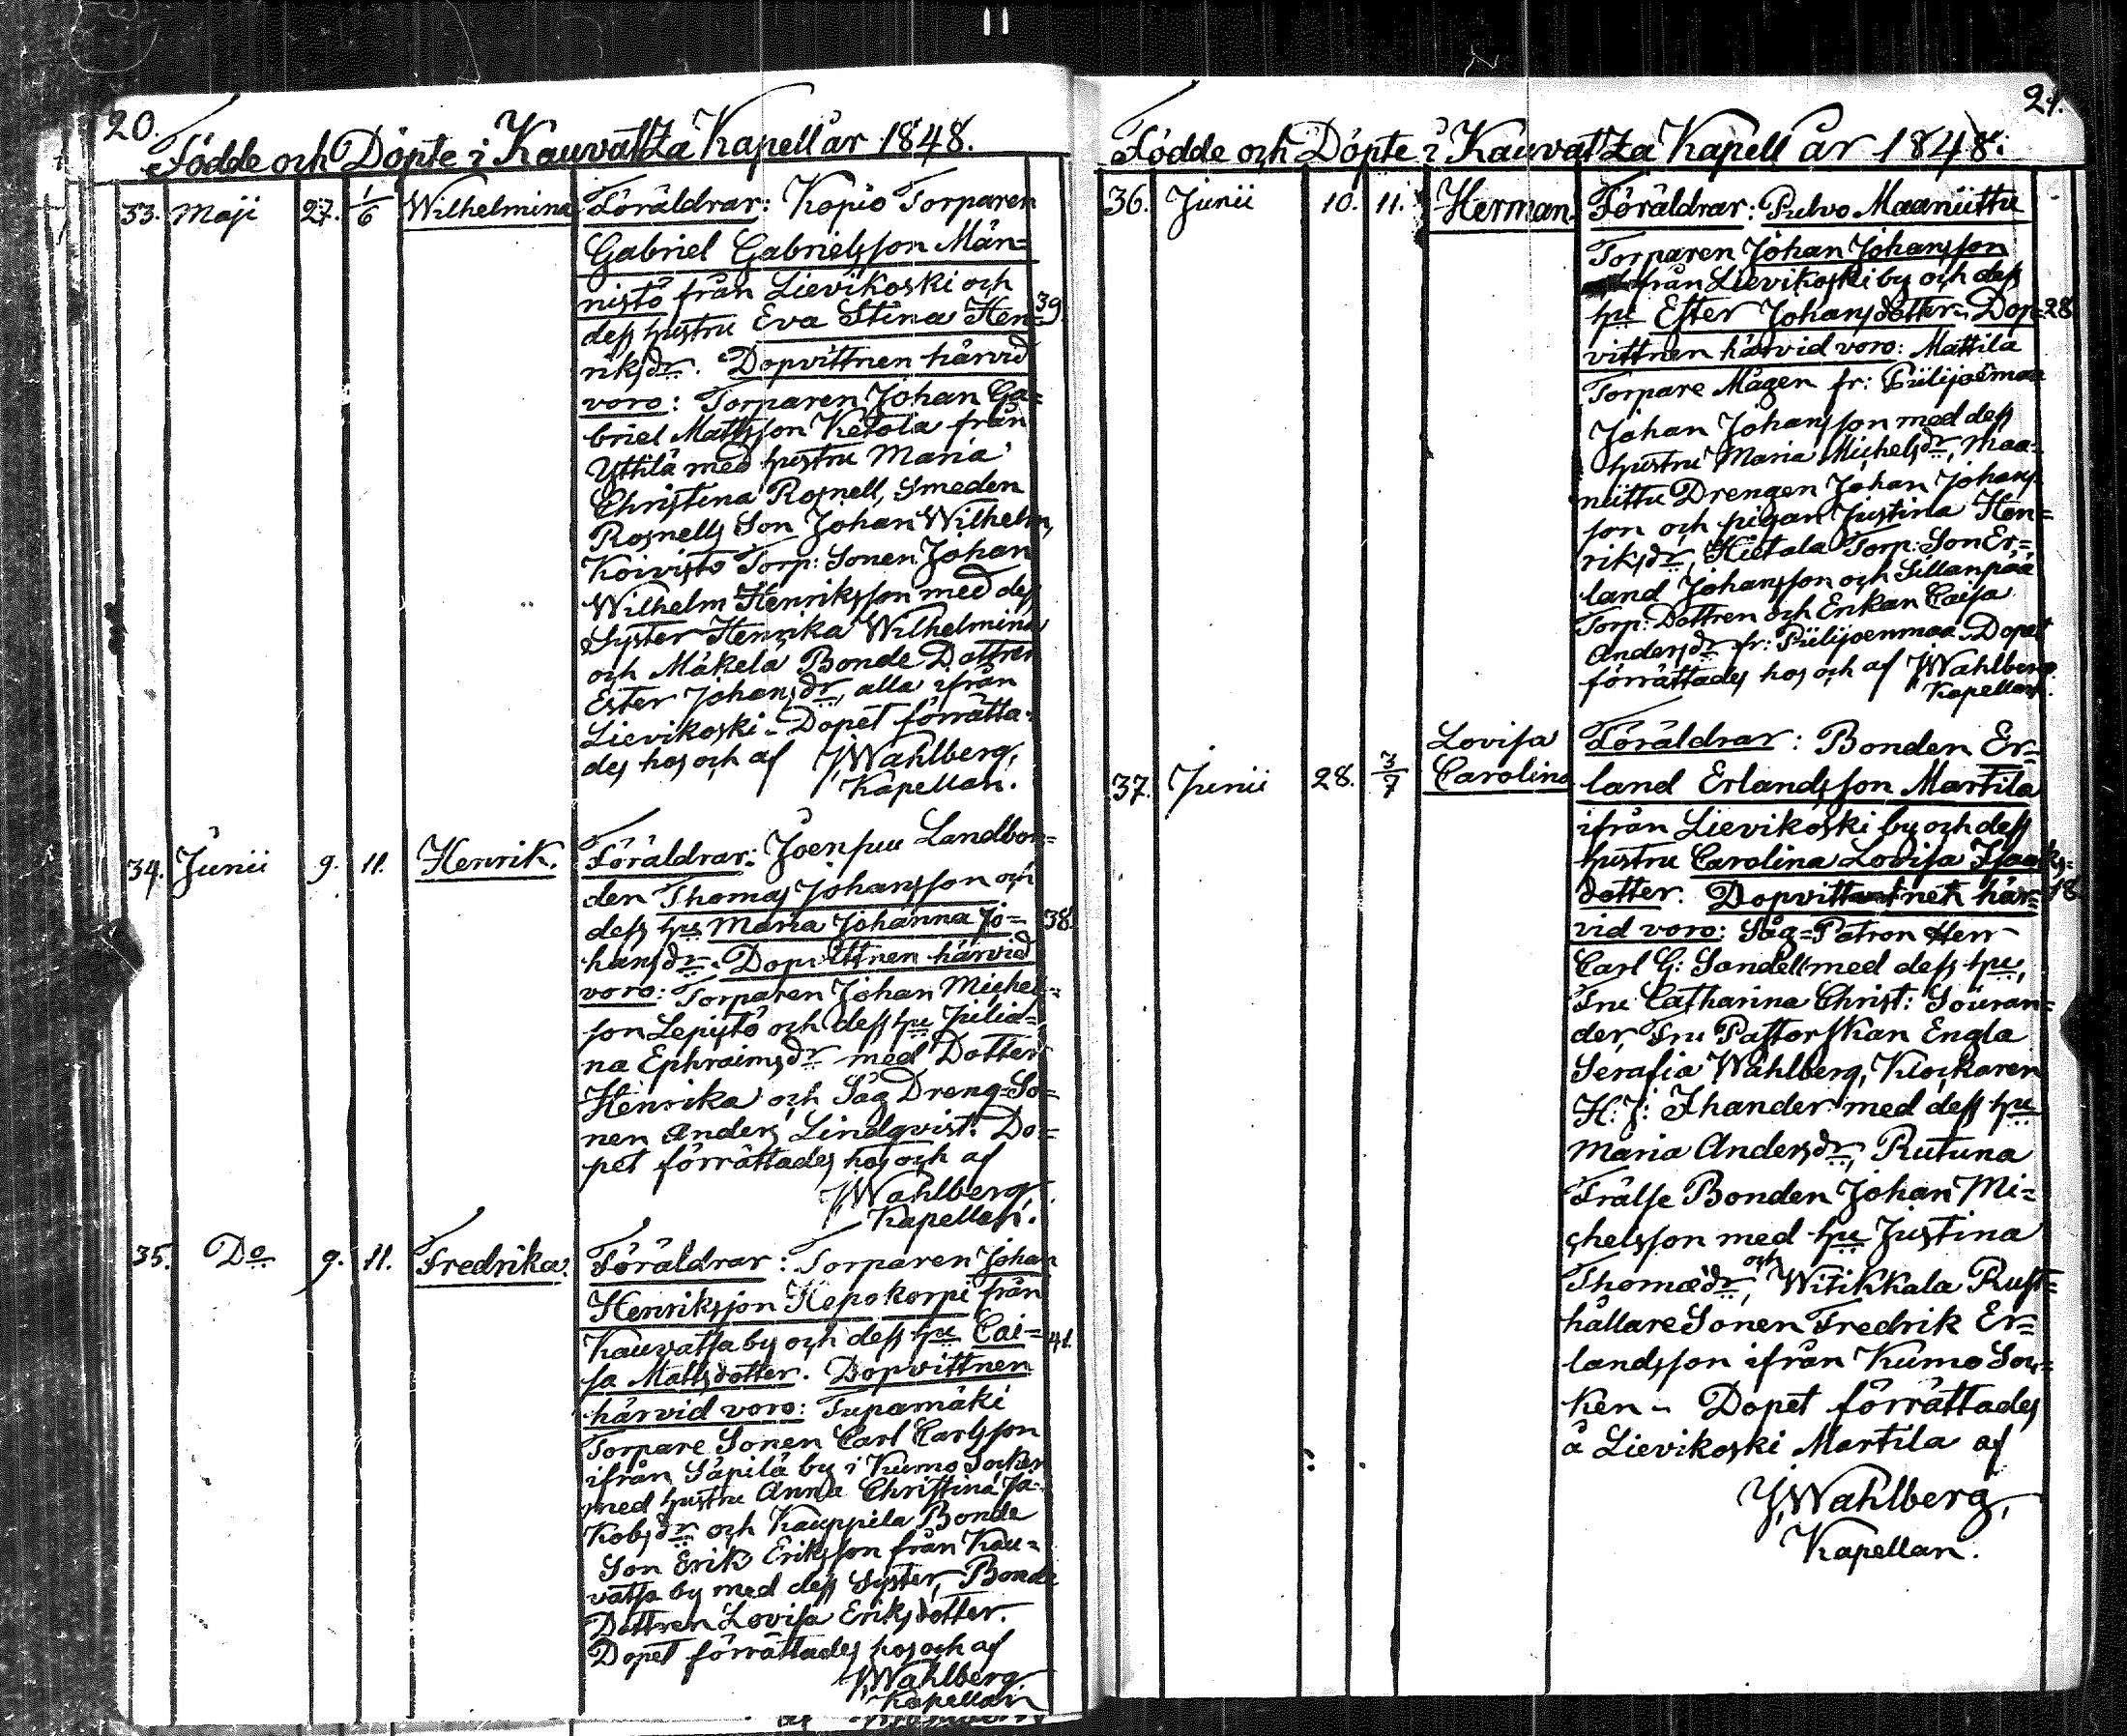 20.
Födde och Döpte i Kauvatza Kapell år 1848.
33. Maji 27. 1/6 Wilhelmina Föräldrar: Kopio Torparen
Gabriel Gabrielsson Män=
nistö från Lievikoski och
dess hustru Eva Stina Hen= 39
riksdr. Dopvittnen härvid
voro: Torparen Johan Ga=
briel Mattsson Ketola från
Yttilä med hustru Maria
Christina Rosnell, Smeden
Rosnells Son Johan Wilhelm,
Koivisto Torp: Sonen Johan
Wilhelm Henriksson med dess
Syster Henrika Wilhelmina
och Mäkelä Bonde Dottren
Ester Johansdr, alla ifrån
Lievikoski – Dopet förrätta-
des hos och af JWahlberg,
Kapellan.
34. Junii 9. 11. Henrik. Föräldrar: Joensuu Landbon=
den Thomas Johansson och
dess hu Maria Johanna Jo= 38.
hansdr. Dopvittnen härvid
voro: Torparen Johan Michels=
son Lepistö och dess hu Julia=
na Ephraimsdr med Dotter
Henrika och Såg Dreng-So=
nen Anders Lindqvist. Do=
pet förrättades hos och af
JWahlberg,
Kapellan.
35. Do 9. 11. Fredrika. Föräldrar: Torparen Johan
Henriksson Hepokorpi från
Kauvatsa by och dess hu Cai= 41.
sa Mattsdotter. Dopvittnen
härvid voro: Tupamäki
Torpare Sonen Carl Carlsson
ifrån Säpilä by i Kumo Socken
med hustru Anna Christina Ja-
kobsdr och Kauppila Bonde
Son Erik Eriksson från Kau=
vatsa by med dess Syster, Bonde
Dottren Lovisa Eriksdotter.
Dopet förrättades hos och af
JWahlberg
Kapellan
21.
Födde och Döpte i Kauvatza Kapell år 1848.
36. Junii 10. 11. Herman. Föräldrar: Pulvo Maaniittu
Torparen Johan Johansson
från Lievikoski by och dess
hu Ester Johansdotter – Dop= 28
vittnen härvid voro: Mattila
Torpare Mågen fr: Piilijoenmaa
Johan Johansson med dess
hustru Maria Michelsdr, Maa-
niittu Drengen Johan Johans-
son och pigan Justina Hen=
riksdr, Hietala Torp: Son Er=
land Johansson och Sillanpää
Torp: Dottren och Enkan Caisa
Andersdr fr: Piilijoenmaa – Dopet
förrättades hos och af JWahlberg
Kapellan.
37. Junii 28. 3/7 Lovisa
Carolina Föräldrar: Bonden Er=
land Erlandsson Martila
ifrån Lievikoski by och dess
hustru Carolina Lovisa Isaaks=
dotter. Dopvittnen här= 18
vid voro: Såg=Patron Herr
Carl G: Sandell med dess hu,
Fru Catharina Christ: Souran=
der, Fru Pastorskan Engla
Serafia Wahlberg, Klockaren
H: J: Ihander med dess hu
Maria Andersdr, Rutuna
Frälse Bonden Johan Mi=
chelsson med hu Justina
Thomædr, och Witikkala Rust=
hållare Sonen Fredrik Er=
landsson ifrån Kumo Soc=
ken – Dopet förrättades
å Lievikoski Martila af
JWahlberg,
Kapellan.